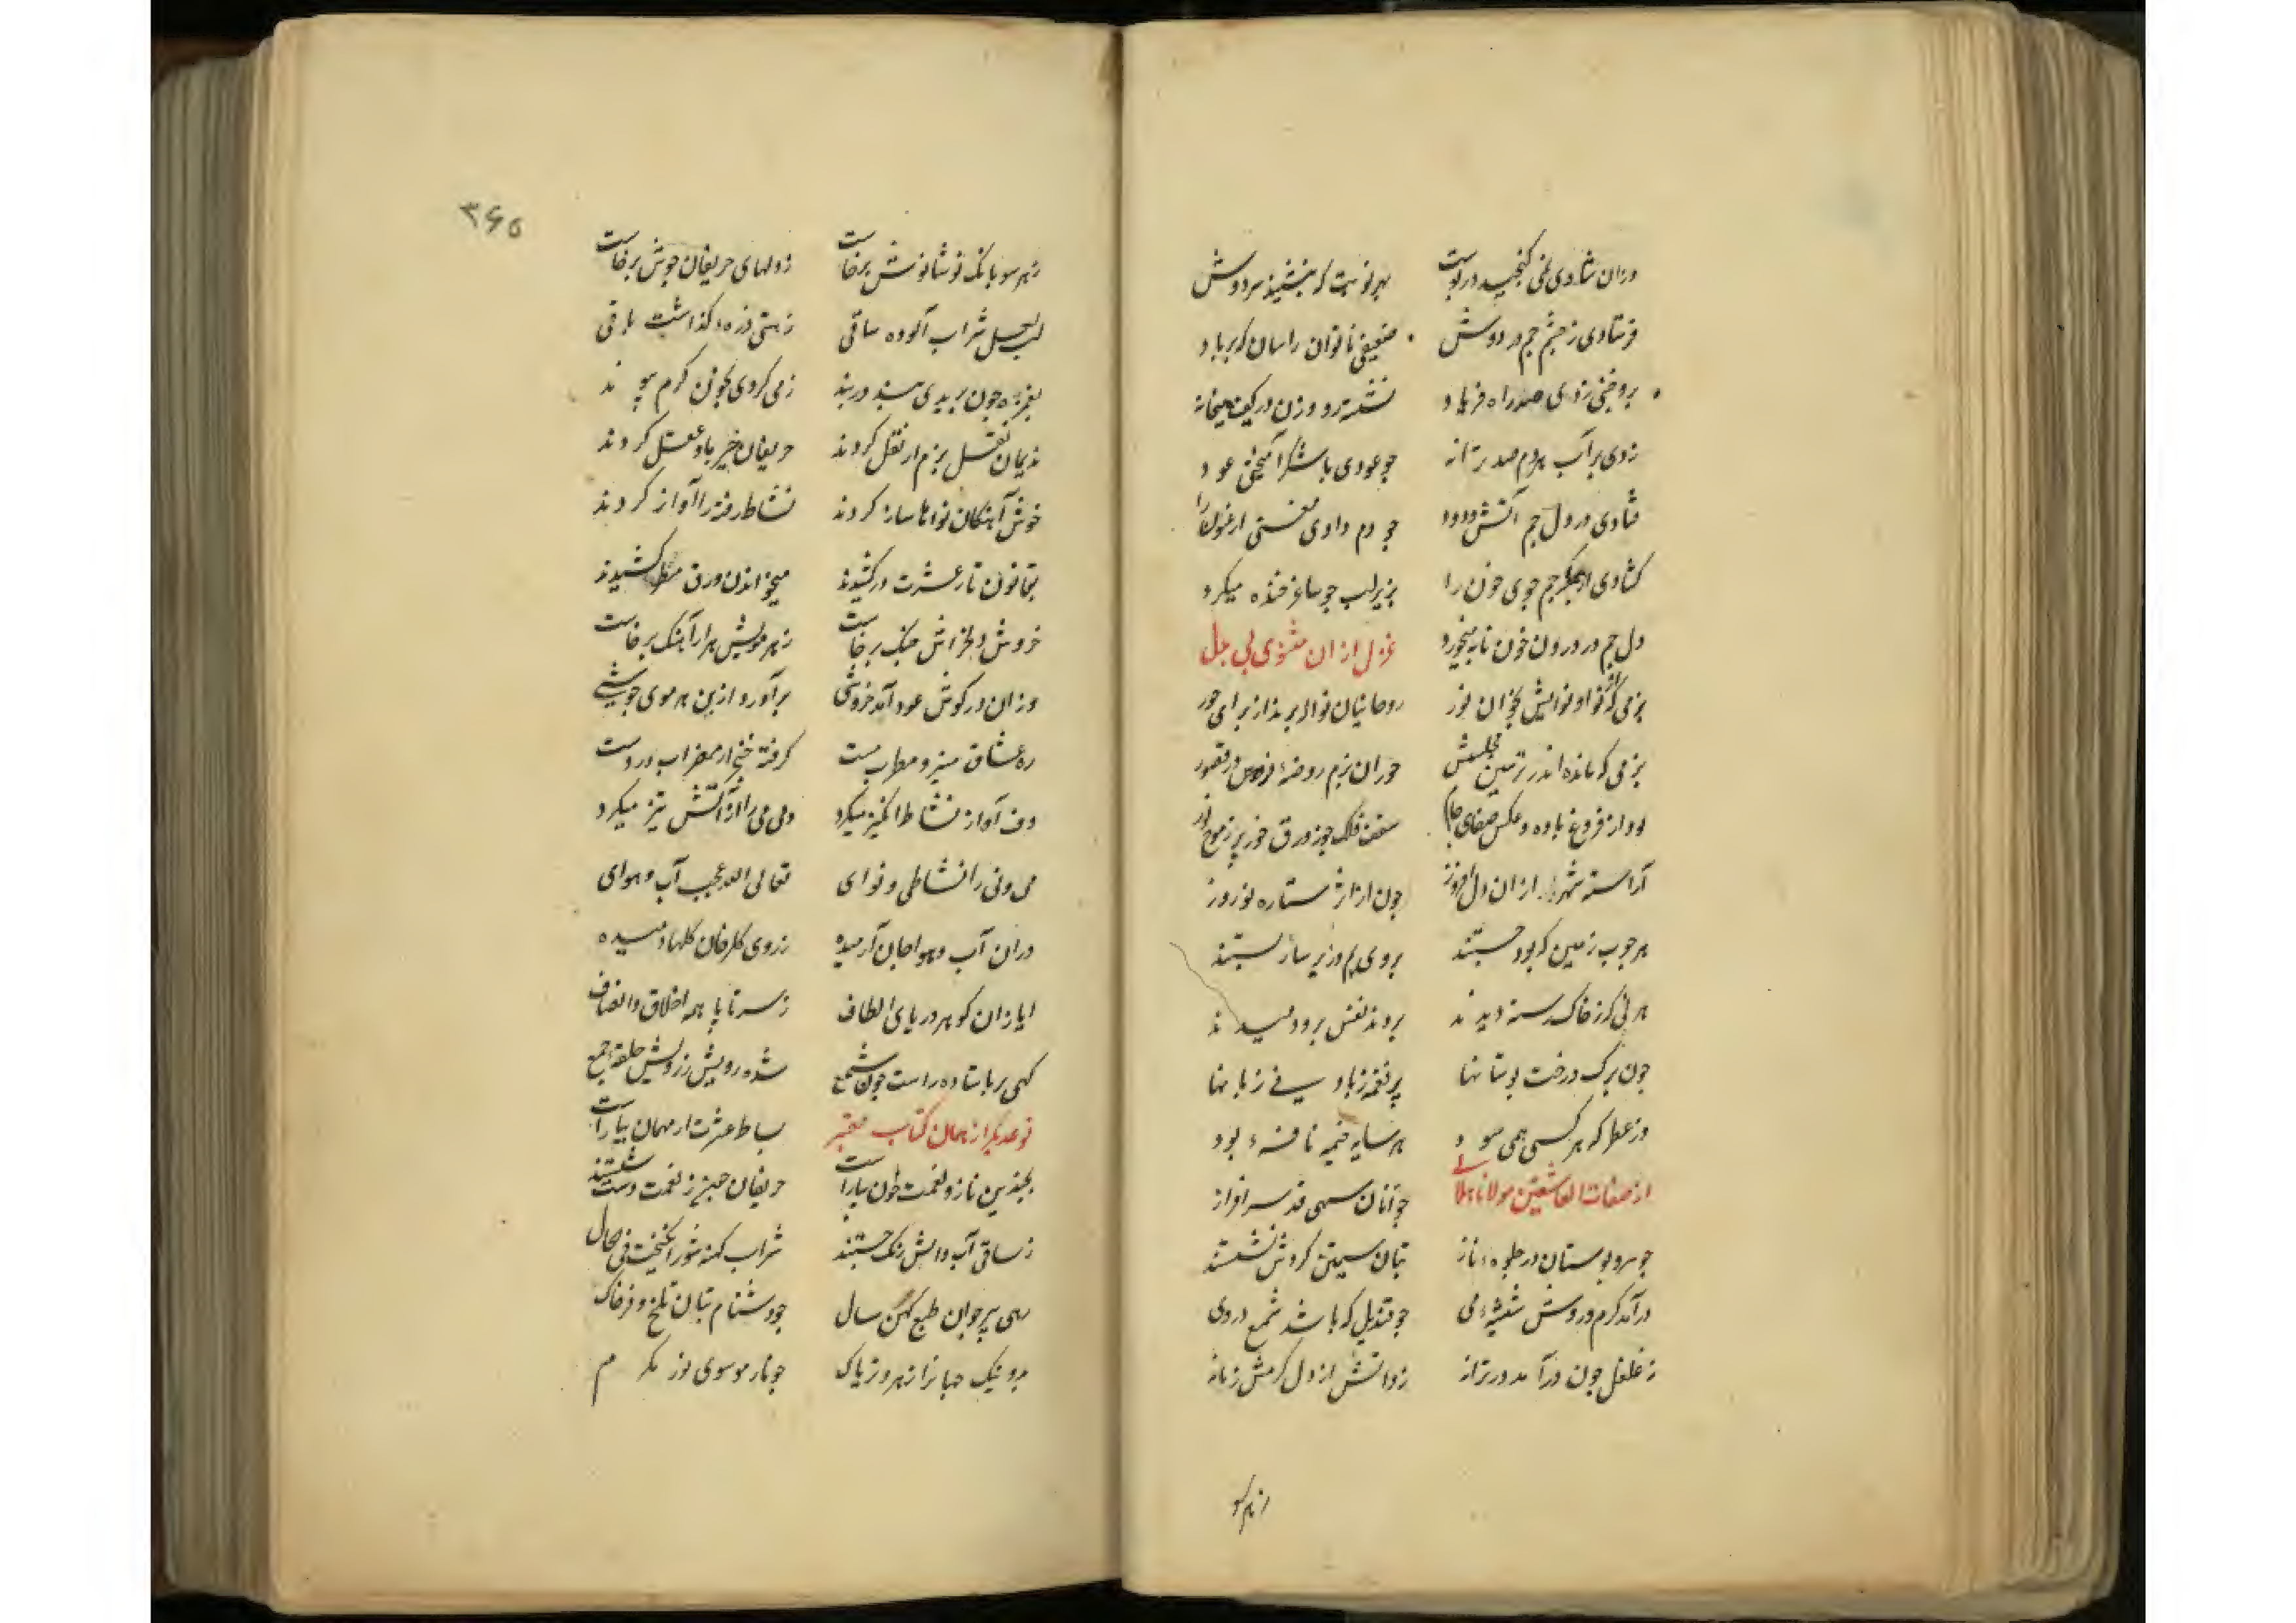 وزان شادی نمی گنجید در پوست بهر نوبت که بنشیند سر دوش
فرستادی ز چشم جم در دوش ضعیفی ناتوان را سان که بر باد
برو چینی زدی صد راه فریاد نشسته رو و زن در یک میخانه
زدی بر آب هر دم صد ترانه چو عودی با شکر آمیختی عود
فتادی در دل جم آتش و دود چو دم دادی مغنی ارغنون را
کشادی از جگر جم جوی خون را بزیر لب چو ساغر خنده میکرد
دل جم در درون خون نابه میخورد غزل از ان مثنوی بی بدل
بزمی که از نوا و نوایش روحانیان نوا از برای حور
بزمی که مانده اند ز تزیین مجلسش حوران بزم روضهٔ فردوس در قصور
از فروغ باده و عکس صفای جام سقف فلک چو زورق خور پر ز موج نور
آراسته شهر از ان دل افروز چون از اثر ستاره نوروز
هر چوب زمین که بود جستند بر روی بم و زیر ساز بستند
هر نی کز خاک رسته دیدند بروند نفس برو دمیدند
چون برگ درخت بوستانها پر نغمه ز باد سی زبانها
وز عطر که هر کسی همی سود هر سایه خیمه نافهٔ بود
از صفات العاشقین مولانا هلالی جوانان سهی قد سرافراز
چو سرو بوستان در جلوهٔ ناز بتان سیمتن گردش نشستند
درآمد گرم در وش شیشهٔ می چو قندیل که باشد شمع در وی
ز غلغل چون درآمد در ترانه زد آتش از دل گرمش زبانه
از هر سو
۳۶۵
ز هر سو بانگ نوشانوش برخاست ز دلهای حریفان جوش برخاست
لب لعل شراب آلوده ساقی ز هستی ذره نگذاشت باقی
بغمزه چون بریدی بند در بند ز می کردی بخون گرم پیوند
ندیمان نقل بزم از نقل کردند حریفان خیرباد عقل کردند
خوش آهنگان نواها ساز کردند نشاط رفته را آواز کردند
بقانون تار عشرت درکشیدند میخواندن ورق مسطر کشیدند
خروش دلخراش چنگ برخاست ز هر مویش هزار آهنگ برخاست
وزان در گوش عود آمد خروشی برآورد از بن هر موی جوشی
ره عشاق میزد مطرب مست گرفته خنجر از مضراب در دست
دف آواز نشاط انگیز میکرد دمی می را از آتش تیز میکرد
می و نی را نشاطی و نوای تعالی الله عجب آب و هوای
دران آب و هوا جان آرمیده ز روی گلرخان گلها دمیده
ایاز ان گوهر دریای الطاف ز سر تا پا همه اخلاق و انصاف
گهی بر پا ستاده راست چون شمع شده رویش ز زلفش حلقهٔ جمع
نوعدیگر از همان کتاب معتبر بساط عشرت از مهمان بیاراست
بچندین ناز و نعمت خوان بیاراست حریفان چون ز نعمت دست شستند
ز ساقی آب و آتش رنگ جستند شراب کهنه شور انگیخت فی الحال
زهی پیر جوان طبع کهن سال چو دشنام بتان تلخ و فرخناک
بد و نیک جهانرا زهر و تریاک چو نار موسوی نور مکرم